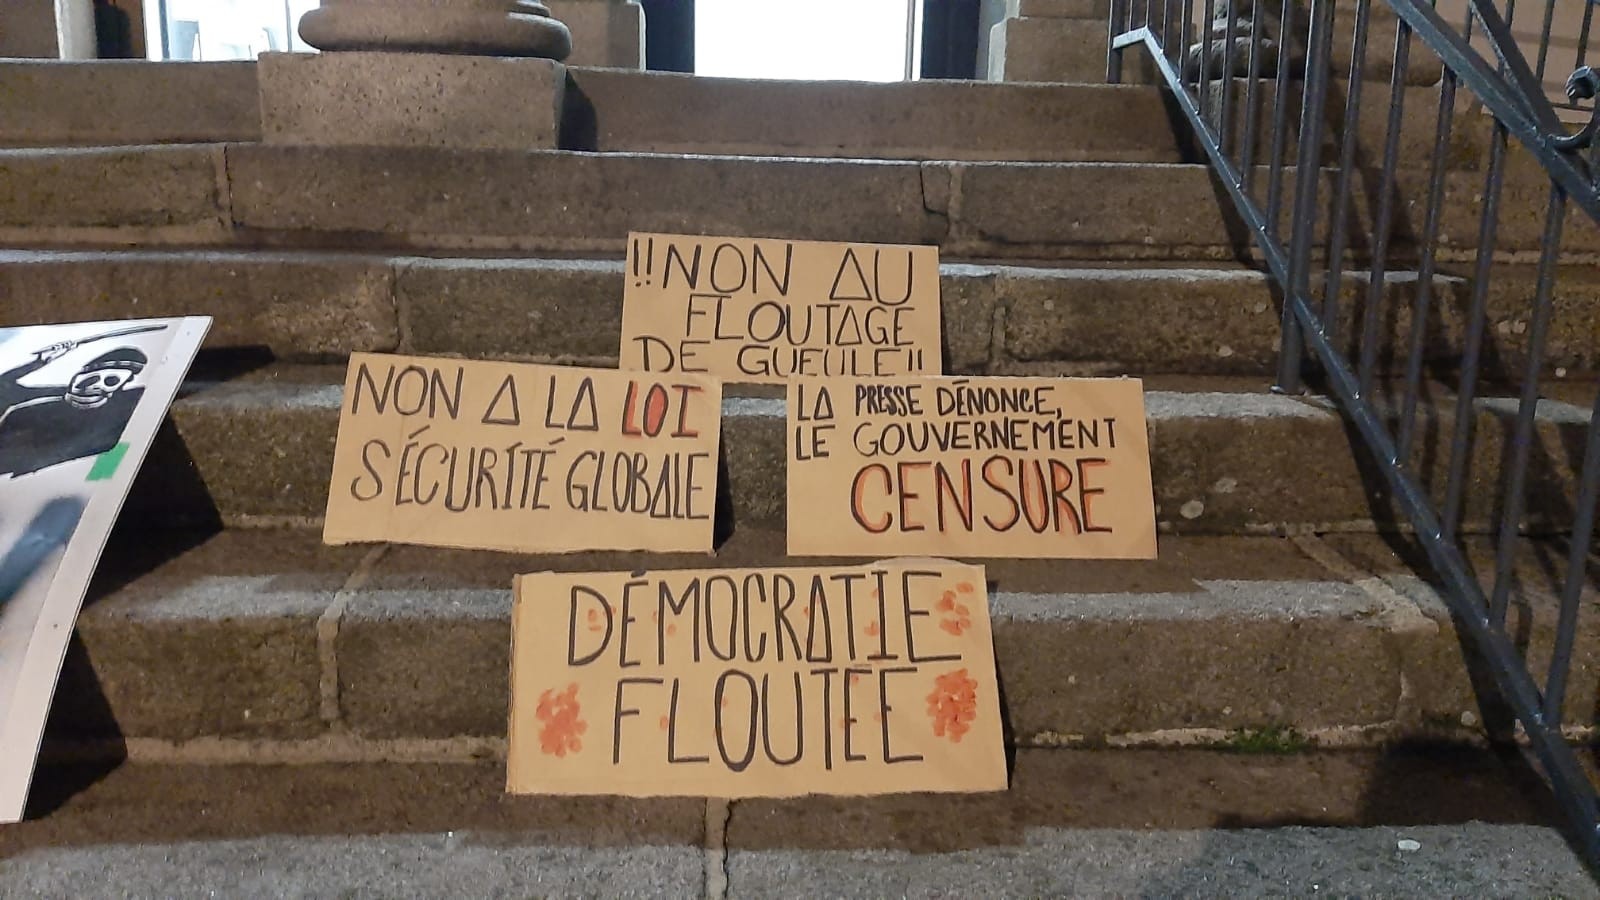 !!NON AU
FLOUTAGE
DE GUEULE!!
NON A LA LOI
SÉCURITÉ GLOBALE
LA PRESSE DÉNONCE,
LE GOUVERNEMENT
CENSURE
DÉMOCRATIE
FLOUTÉE